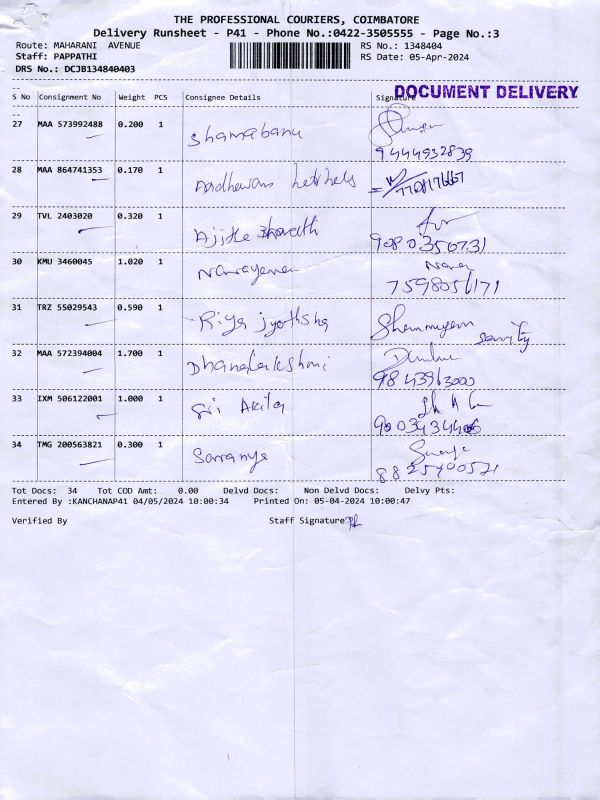 THE PROFESSIONAL COURIERS, COIMBATORE
Delivery Runsheet - P41 - Phone No.:0422-3505555 - Page No.:3
Route: MAHARANI AVENUE RS No.: 1348404
Staff: PAPPATHI RS Date: 05-Apr-2024
DRS No.: DCJB134840403
DOCUMENT DELIVERY
S No Consignment No Weight PCS Consignee Details Signature
27 MAA 573992488 0.200 1 Shamabanu
9444932839
28 MAA 864741353 0.170 1
29 TVL 2403020 0.320 1
30 KMU 3460045 1.020 1 Narayanan
7598056171
31 TRZ 55029543 0.590 1 Riya jyothsha
32 MAA 572394004 1.700 1 Dhanalakshmi
9843963000
33 IXM 506122001 1.000 1 Sri Akila
34 TMG 200563821 0.300 1 Saranya
Tot Docs: 34 Tot COD Amt: 0.00 Delvd Docs: Non Delvd Docs: Delvy Pts:
Entered By :KANCHANAP41 04/05/2024 10:00:34 Printed On: 05-04-2024 10:00:47
Verified By Staff Signature